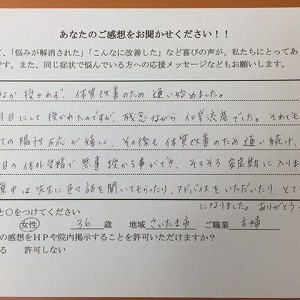 あなたのご感想をお聞かせください！！
て、「悩みが解消された」「こんなに改善した」など喜びの声が、私たちにとってあ
です。また、同じ症状で悩んでいる方への応援メッセージなどもお願いします。
なか授かれず、体質改善のため通い始めました。
目にして授かれたのですが、残念ながら化学流産でした。それでも
ての陽性反応が嬉しく、その後も体質改善のため通い続け、
目の体外受精で無事授かる事ができ、そろそろ安定期に入りま
中は先生に色々話を聞いてもらったり、アドバイスをいただいたり、とて
になりました。ありがとう
と○をつけてください
女性 36 歳 地域 さいたま市 ご職業 主婦
の感想をＨＰや院内掲示することを許可いただけますか？
る 許可しない